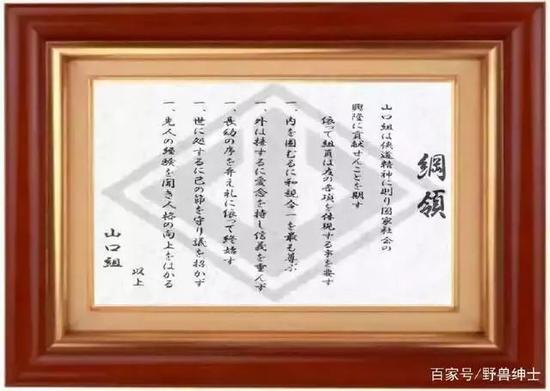 綱領
山口組は侠道精神に則り国家社会の
興隆に貢献せんことを期す
依って組員は左の各項を体現する事を要す
一、内を固むるに和親合一を最も尊ぶ
一、外は接するに愛念を持し信義を重んず
一、長幼の序を弁え礼に依って終始す
一、世に処するに己の節を守り譏を招かず
一、先人の経験を聞き人格の向上をはかる
以上
山口組
百家号/野兽绅士